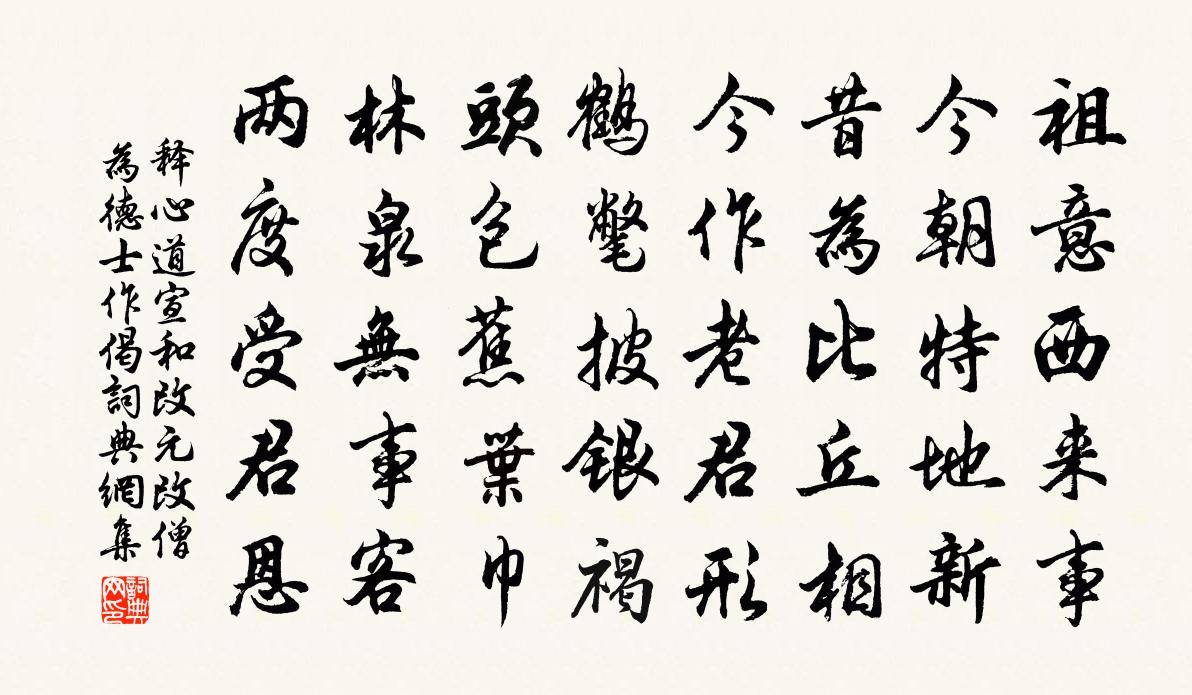 祖意西来事
今朝特地新
昔為比丘相
今作老君形
鶴氅披銀褐
頭包蕉葉巾
林泉無事客
两度受君恩
释心道宣和改元改僧
為德士作偈詞典網集
詞典网印